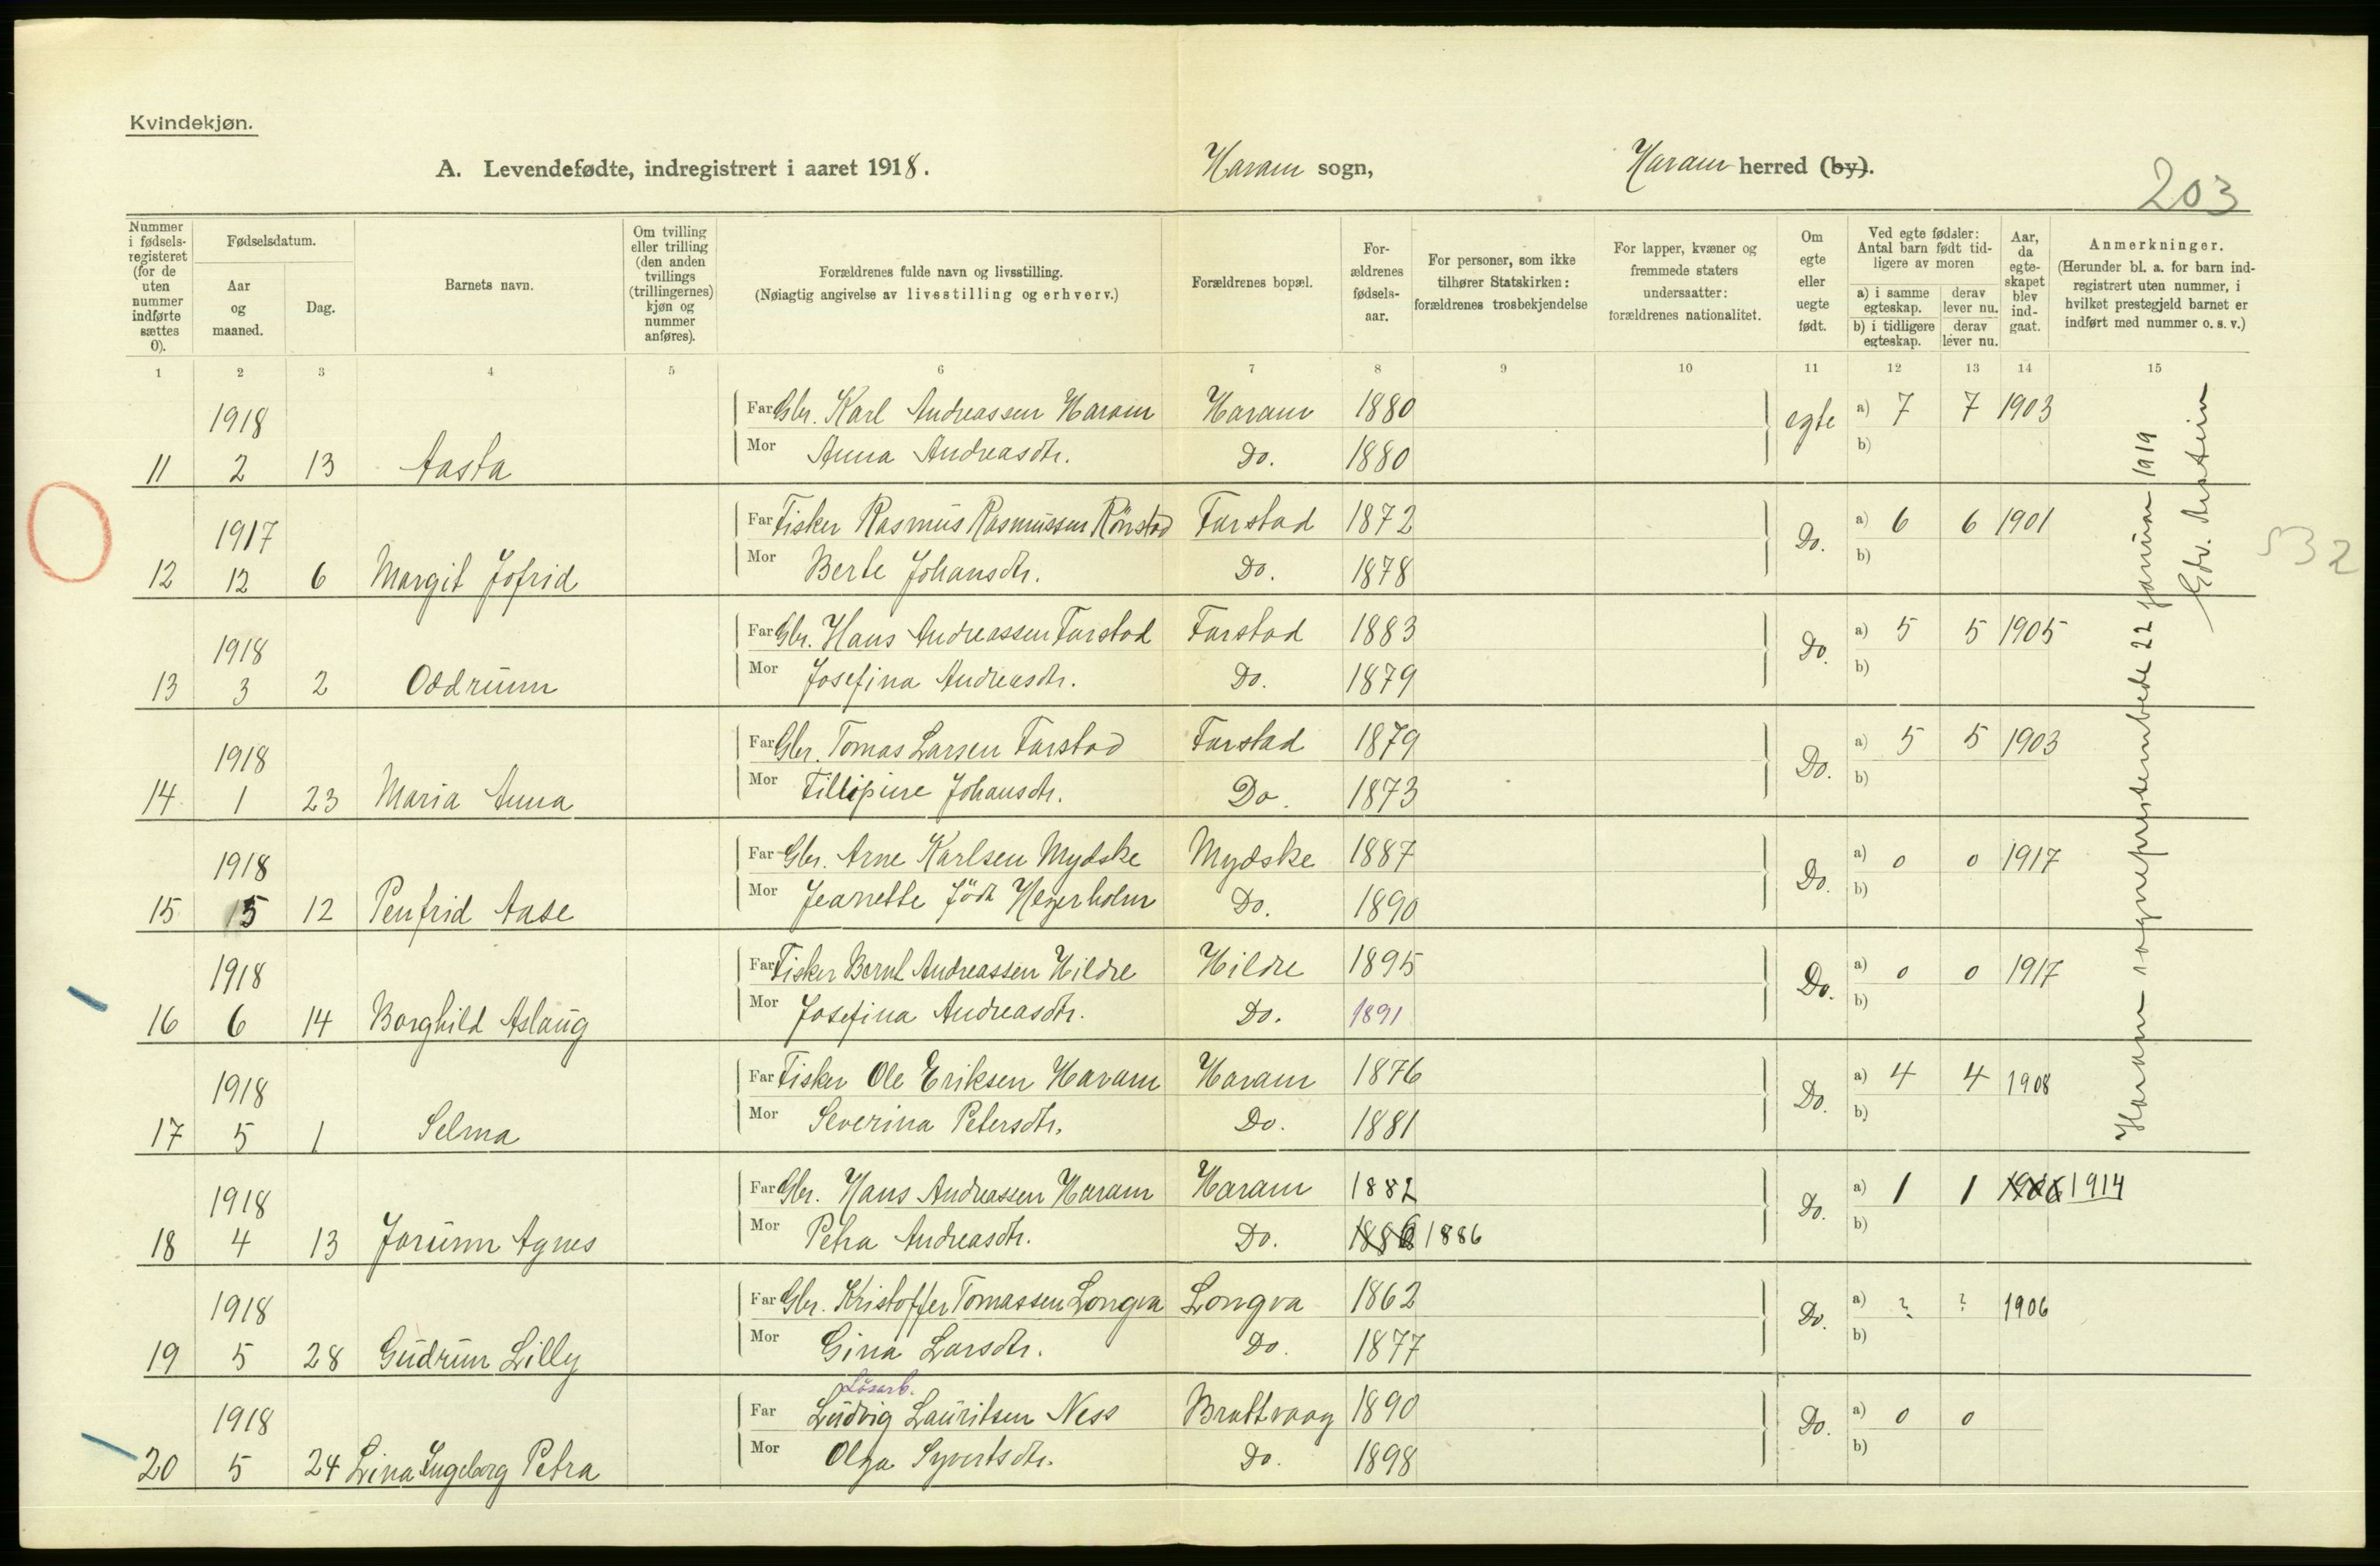 Kvindekjøn.
A. Levendefødte, indregistrert i aaret 1918. Haram sogn, Haram herred (by).
203
Nummer i fødsels-registeret (for de uten nummer indførte sættes 0).
Fødselsdatum.
Aar og maaned.
Dag.
Barnets navn.
Om tvilling eller trilling (den anden tvillings (trillingernes) kjøn og nummer anføres).
Forældrenes fulde navn og livsstilling.
(Nøiagtig angivelse av livsstilling og erhverv.)
Forældrenes bopæl.
For-ældrenes fødsels-aar.
For personer, som ikke tilhører Statskirken: forældrenes trosbekjendelse
For lapper, kvæner og fremmede staters undersaatter: forældrenes nationalitet.
Om egte eller uegte født.
Ved egte fødsler: Antal barn født tid-ligere av moren
a) i samme egteskap. derav lever nu.
b) i tidligere egteskap. derav lever nu.
Aar, da egte-skapet blev ind-gaat.
Anmerkninger.
(Herunder bl. a. for barn ind-registrert uten nummer, i hvilket prestegjeld barnet er indført med nummer o. s. v.)
1 2 3 4 5 6 7 8 9 10 11 12 13 14 15
1918 Far Gbr. Karl Andreassen Haram Haram 1880 egte a) 7 7 1903
11 2 13 Aasta Mor Anna Andreasdtr. Do. 1880 b)
1917 Far Fisker Rasmus Rasmussen Rönstad Farstad 1872 Do. a) 6 6 1901
12 12 6 Margit Jofrid Mor Berte Johansdtr. Do. 1878 b)
532
1918 Far Gbr. Hans Andreassen Farstad Farstad 1883 Do. a) 5 5 1905
13 3 2 Oddrunn Mor Josefina Andreasdtr. Do. 1879 b)
1918 Far Gbr. Tomas Larsen Farstad Farstad 1879 Do. a) 5 5 1903
14 1 23 Maria Anna Mor Fillipine Johansdtr. Do. 1873 b)
1918 Far Gbr. Arne Karlsen Mydske Mydske 1887 Do. a) 0 0 1917
15 5 12 Penfrid Aase Mor Jeanette född Hegerholm Do. 1890 b)
1918 Far Fisker Bernt Andreassen Hildre Hildre 1895 Do. a) 0 0 1917
16 6 14 Borghild Aslaug Mor Josefina Andreasdtr. Do. 1891 b)
1918 Far Fisker Ole Eriksen Haram Haram 1876 Do. a) 4 4 1908
17 5 1 Selma Mor Severina Petersdtr. Do. 1881 b)
1918 Far Gbr. Hans Andreassen Haram Haram 1882 Do. a) 1 1 1914
18 4 13 Jorunn Agnes Mor Petra Andreasdtr. Do. 1886 b)
1918 Far Gbr. Kristoffer Tomassen Longva Longva 1862 Do. a) ? ? 1906
19 5 28 Gudrun Lilly Mor Gina Larsdtr. Do. 1877 b)
Lösarb.
1918 Far Ludvig Lauritsen Ness Brattvaag 1890 Do. a) 0 0
20 5 24 Lina Ingeborg Petra Mor Olga Syvertsdtr. Do. 1898 b)
Haram sogneprestembede 22 januar 1919